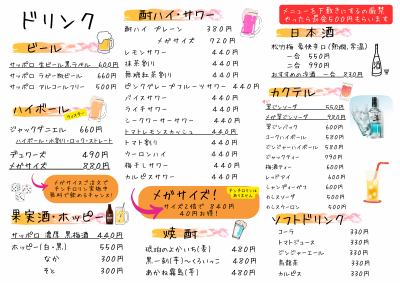 ドリンク
ビール
サッポロ 生ビール黒ラベル 600円
サッポロ ラガー瓶ビール 660円
サッポロ アルコールフリー 500円
ハイボール
ウィスキー
ジャックダニエル 660円
ハイボール・水割り・ロック・ストレート
デュワーズ 490円
メガサイズ 880円
メガサイズご注文で
チンチロリン実施中
無料で飲めるチャンス!
果実酒・ホッピー
サッポロ 濃厚 黒梅酒 440円
ホッピー(白・黒) 550円
なか 300円
そと 300円
酎ハイ・サワー
酎ハイ プレーン 380円
メガサイズ 920円
レモンサワー 440円
抹茶割り 440円
無糖紅茶割り 440円
ピンクグレープフルーツサワー 440円
バイスサワー 440円
ライチサワー 440円
シークワーサーサワー 440円
トマトレモンスカッシュ 440円
トマト割り 440円
ウーロンハイ 440円
梅干しサワー 440円
カルピスサワー 440円
メガサイズ!
サイズ2倍で 840円
40円お得!
チンチロリンは
ありません
焼酎
琥珀のよかいち(麦) 480円
黒一刻(芋)～くろいっこ 480円
あかね霧島(芋) 480円
メニューを下敷きにするの厳禁
やったら罰金500円もらいます
日本酒
松竹梅 豪快辛口(熱燗,常温)
一合 550円
二合 990円
おすすめの冷酒 一合 830円
カクテル
翠ジンソーダ 550円
メガ翠ジンソーダ 980円
翠ジンバック 600円
コークハイボール 580円
ジンジャーハイボール 580円
ジャックティー 990円
梅酒ティー 600円
レッドアイ 600円
シャンディーガフ 600円
カシスソーダ 500円
カシスウーロン 500円
ソフトドリンク
コーラ 330円
トマトジュース 330円
ジンジャーエール 330円
烏龍茶 330円
カルピス 330円